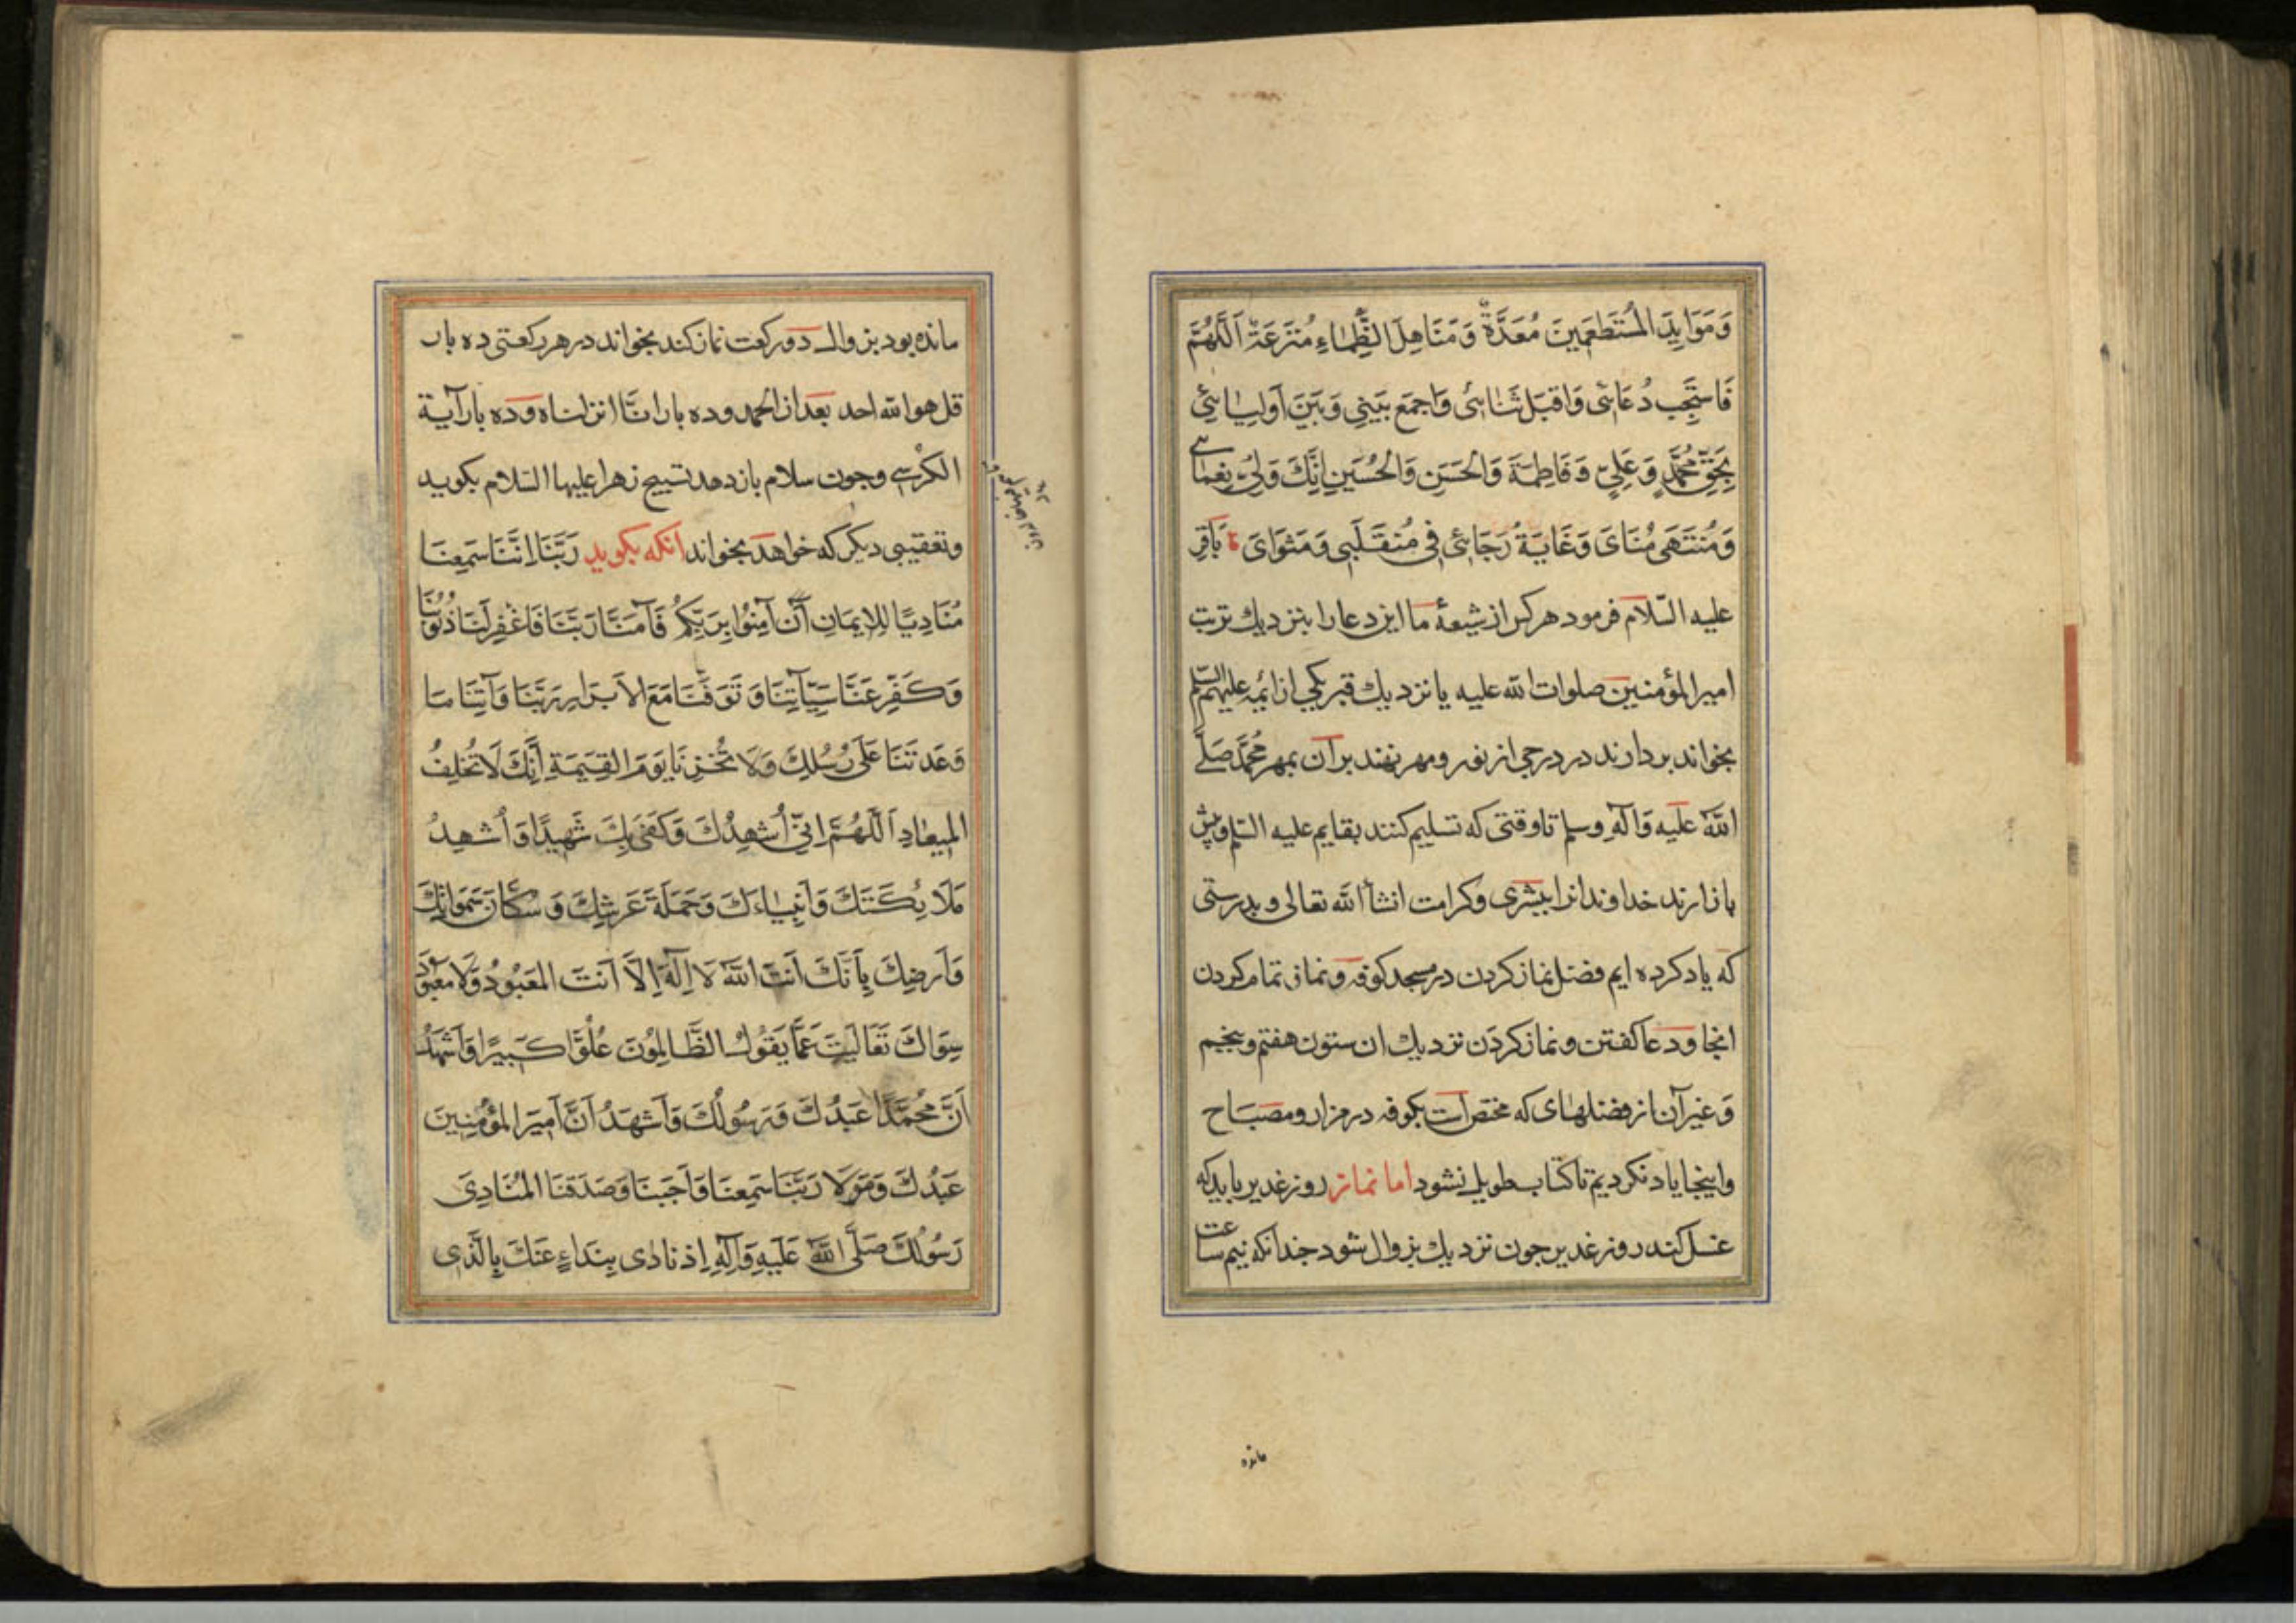 وَمَوَایِدَ المُستَطعِمِینَ مُعَدَّةٌ وَمَنَاهِلَ الظِّمَاءِ مُترَعَةٌ اَللَّهُمَّ
فَاستَجِب دُعَائی وَاقبَل ثَنَائی وَاجمَع بَینِی وَبَینَ اَولِیَائِی
بِحَقِّ مُحَمَّدٍ وَعَلِیٍّ وَفَاطِمَةَ وَالحَسَنِ وَالحُسَینِ اِنَّكَ وَلِیُّ نِعمَائِی
وَمُنتَهَی مُنَایَ وَغَایَةُ رَجَائِی فِی مُنقَلَبِی وَمَثوَایَ بَاقِر
علیه السّلام فرمود هرکس از شیعهٔ ما این دعا را بنزدیك تربت
امیر المؤمنین صلوات الله علیه یا نزدیك قبر یکی از ائمه علیهم السّلم
بخواند بردارند در درجی از نور و مهر نهند بر آن بمهر مُحَمَّد صَلَّی
اللّٰه عَلَیه وَآلهِ وسلم تا وقتی که تسلیم کنند بقایم علیه السّلم و پیش
باز ارند خداوند انرا ببشری و کرامت انشأ اللّٰه تعالی و بدرستی
که یاد کرده ایم فضل نماز کردن در مسجد کوفه و نماز تمام کردن
انجا و دعا کفتن و نماز کردن نزدیك ان ستون هفتم و پنجم
وَغیر آن از فضلهای که مختص است بکوفه در مزار و مصبَاح
و اینجا یاد نکردیم تا کتاب طویل نشود اما نماز روز غدیر باید که
غسل کند روز غدیر جون نزدیك بزوال شود جندانکه نیم ساعت
مانده
مانده بود بزوال دو رکعت نماز کند بخواند در هر رکعتی ده بار
قل هو الله احد بعد از الحمد و ده بار انَّا انزلناه وَده بار آیة
الکرسی و جون سلام باز دهد تسبیح زهرا علیها السّلام بکوید
و تعقیبی دیکر که خواهد بخواند انکه بکوید رَبَّنَا اِنَّنَا سَمِعنَا
مُنَادِیًا لِلاِیمَانِ اَن آمِنُوا بِرَبِّکُم فَآمَنَّا رَبَّنَا فَاغفِر لَنَا ذُنُوبَنَا
وَکَفِّر عَنَّا سَیِّآتِنَا وَتَوَفَّنَا مَعَ الاَبرَارِ رَبَّنَا وَآتِنَا مَا
وَعَدتَنَا عَلَی رُسُلِكَ وَلَا تُخزِنَا یَومَ القِیَمَةِ اِنَّكَ لَا تُخلِفُ
المِیعَادِ اَللّهُمَّ اِنِّی اُشهِدُكَ وَکَفَی بِكَ شَهِیدًا وَاُشهِدُ
مَلَائِکَتَكَ وَاَنبِیَاءَكَ وَحَمَلَةَ عَرشِكَ وَسُکَّانَ سَمَوَاتِكَ
وَاَرضِكَ بِاَنَّكَ اَنتَ اللّٰهُ لَا اِلٰهَ اِلَّا اَنتَ المَعبُودُ وَلَا مَعبُودَ
سِوَاكَ تَعَالَیتَ عَمَّا یَقُولُ الظَّالِمُونَ عُلُوًّا کَبِیرًا وَاَشهَدُ
اَنَّ مُحَمَّدًا عَبدُكَ وَرَسُولُكَ وَاَشهَدُ اَنَّ اَمِیرَ المُؤمِنِینَ
عَبدُكَ وَمَولَا رَبَّنَا سَمِعنَا وَاَجَبنَا وَصَدَقنَا المُنَادِیَ
رَسُولُكَ صَلَّی اللّٰهُ عَلَیهِ وَآلِهِ اِذ نَادَی بِنِدَاءٍ عَنكَ بِالَّذِی